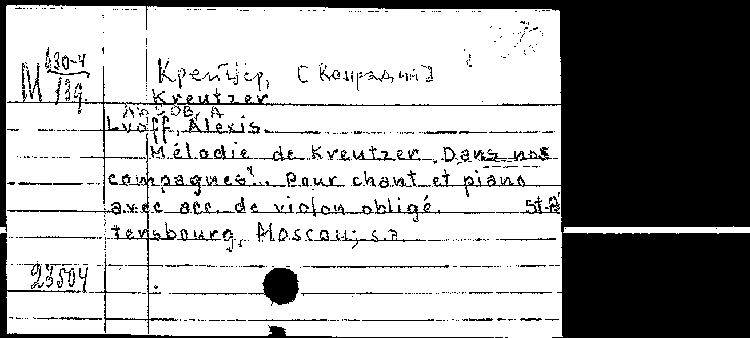 М 630-4
139
Крейцер, [Конрадин]
Kreutzer
Львов, А
Lvoff, Alexis.
Mélodie de Kreutzer „Dans nos
campagnes"... Pour chant et piano
avec acc. de violon obligé. St-Pé
tersbourg, Moscou, s.a.
23504